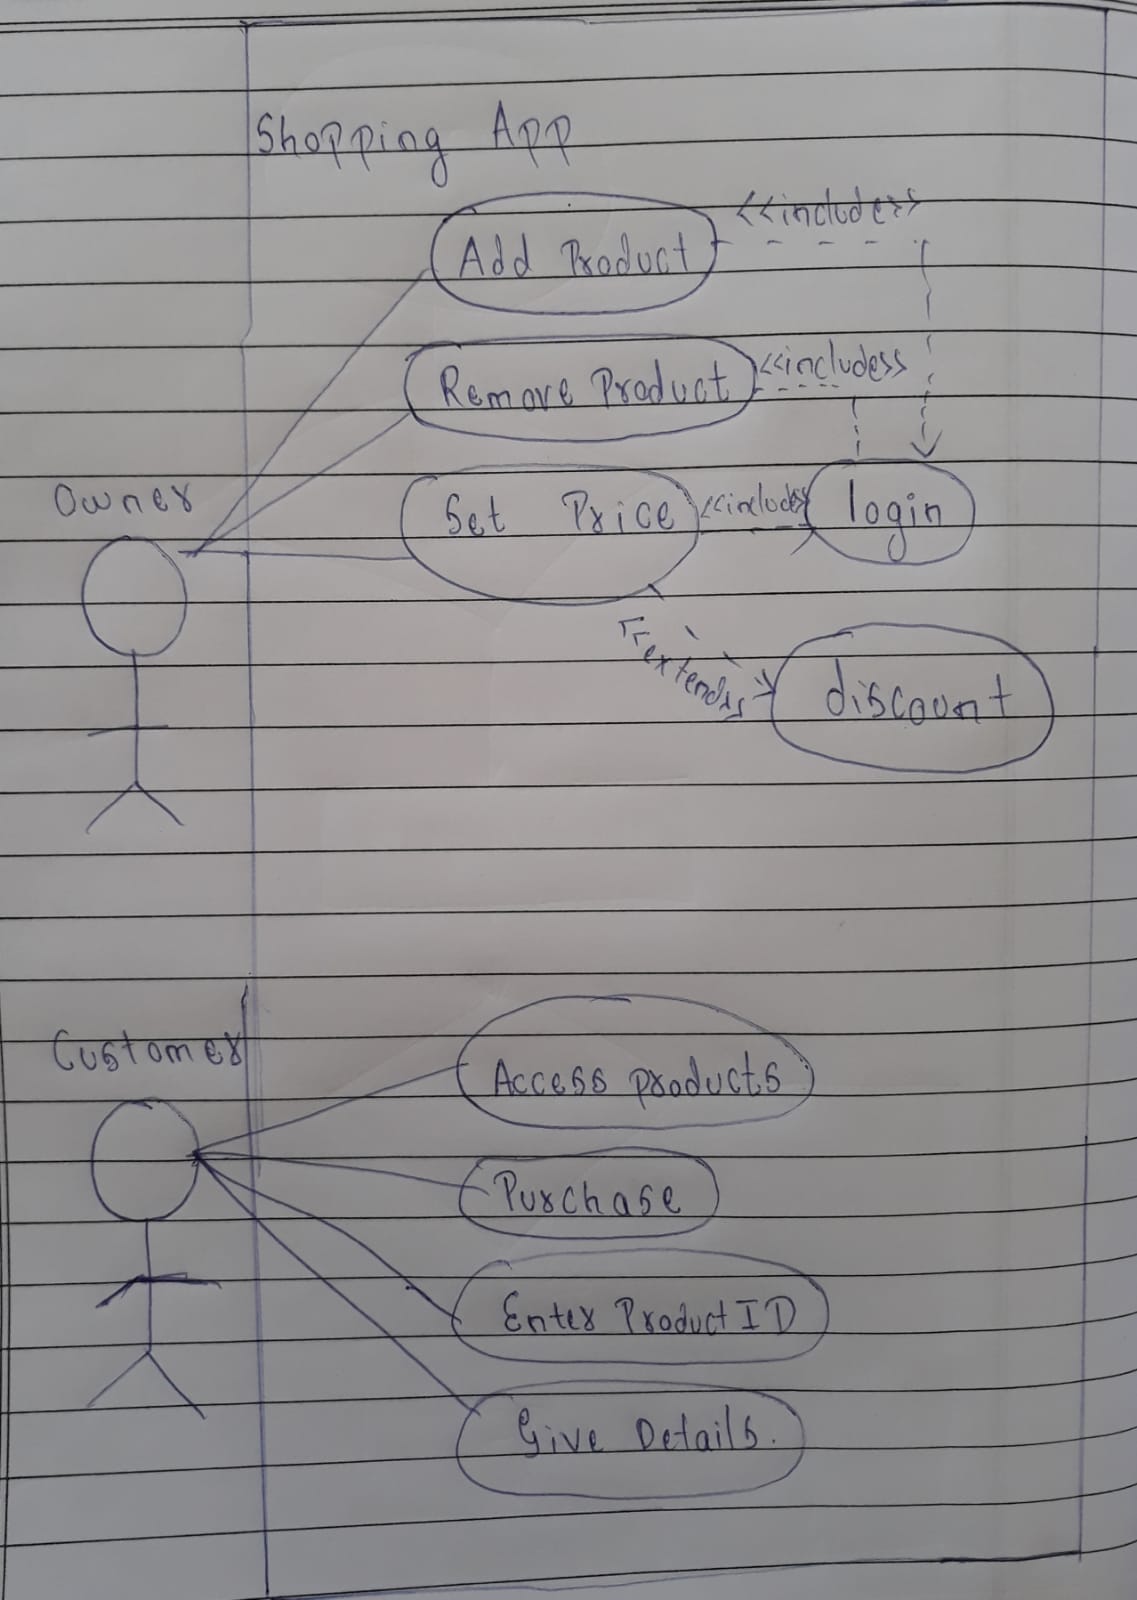 Shopping App
<<include>>
Add Product
<<include>>
Remove Product
Owner
Set Price
<<include>>
login
<<extend>>
discount
Customer
Access products
Purchase
Enter Product ID
Give Details.